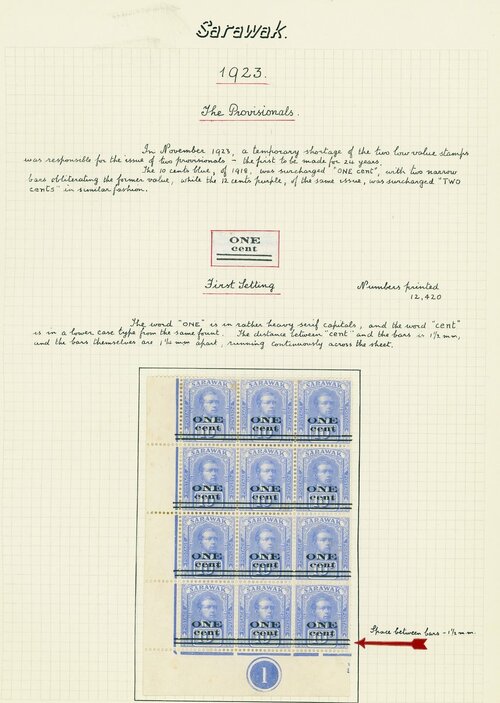 Sarawak.
1923.
The Provisionals.
In November 1923, a temporary shortage of the two low value stamps
was responsible for the issue of two provisionals - the first to be made for 24 years.
The 10 cents blue, of 1918, was surcharged "ONE cent", with two narrow
bars obliterating the former value, while the 12 cents purple, of the same issue, was surcharged "TWO
cents" in similar fashion.
ONE
cent
First Setting
Numbers printed
12,420
The word "ONE" is in rather heavy serif capitals, and the word "cent"
is in a lower case type from the same fount. The distance between "cent" and the bars is 1½ mm,
and the bars themselves are mm apart, running continuously across the sheet.
SARAWAK SARAWAK SARAWAK
ONE ONE ONE
cent cent cent
SARAWAK SARAWAK SARAWAK
ONE ONE ONE
cent cent cent
SARAWAK SARAWAK SARAWAK
ONE ONE ONE
cent cent cent
SARAWAK SARAWAK SARAWAK
ONE ONE ONE
cent cent cent
Space between bars - 1½ mm.
1
1